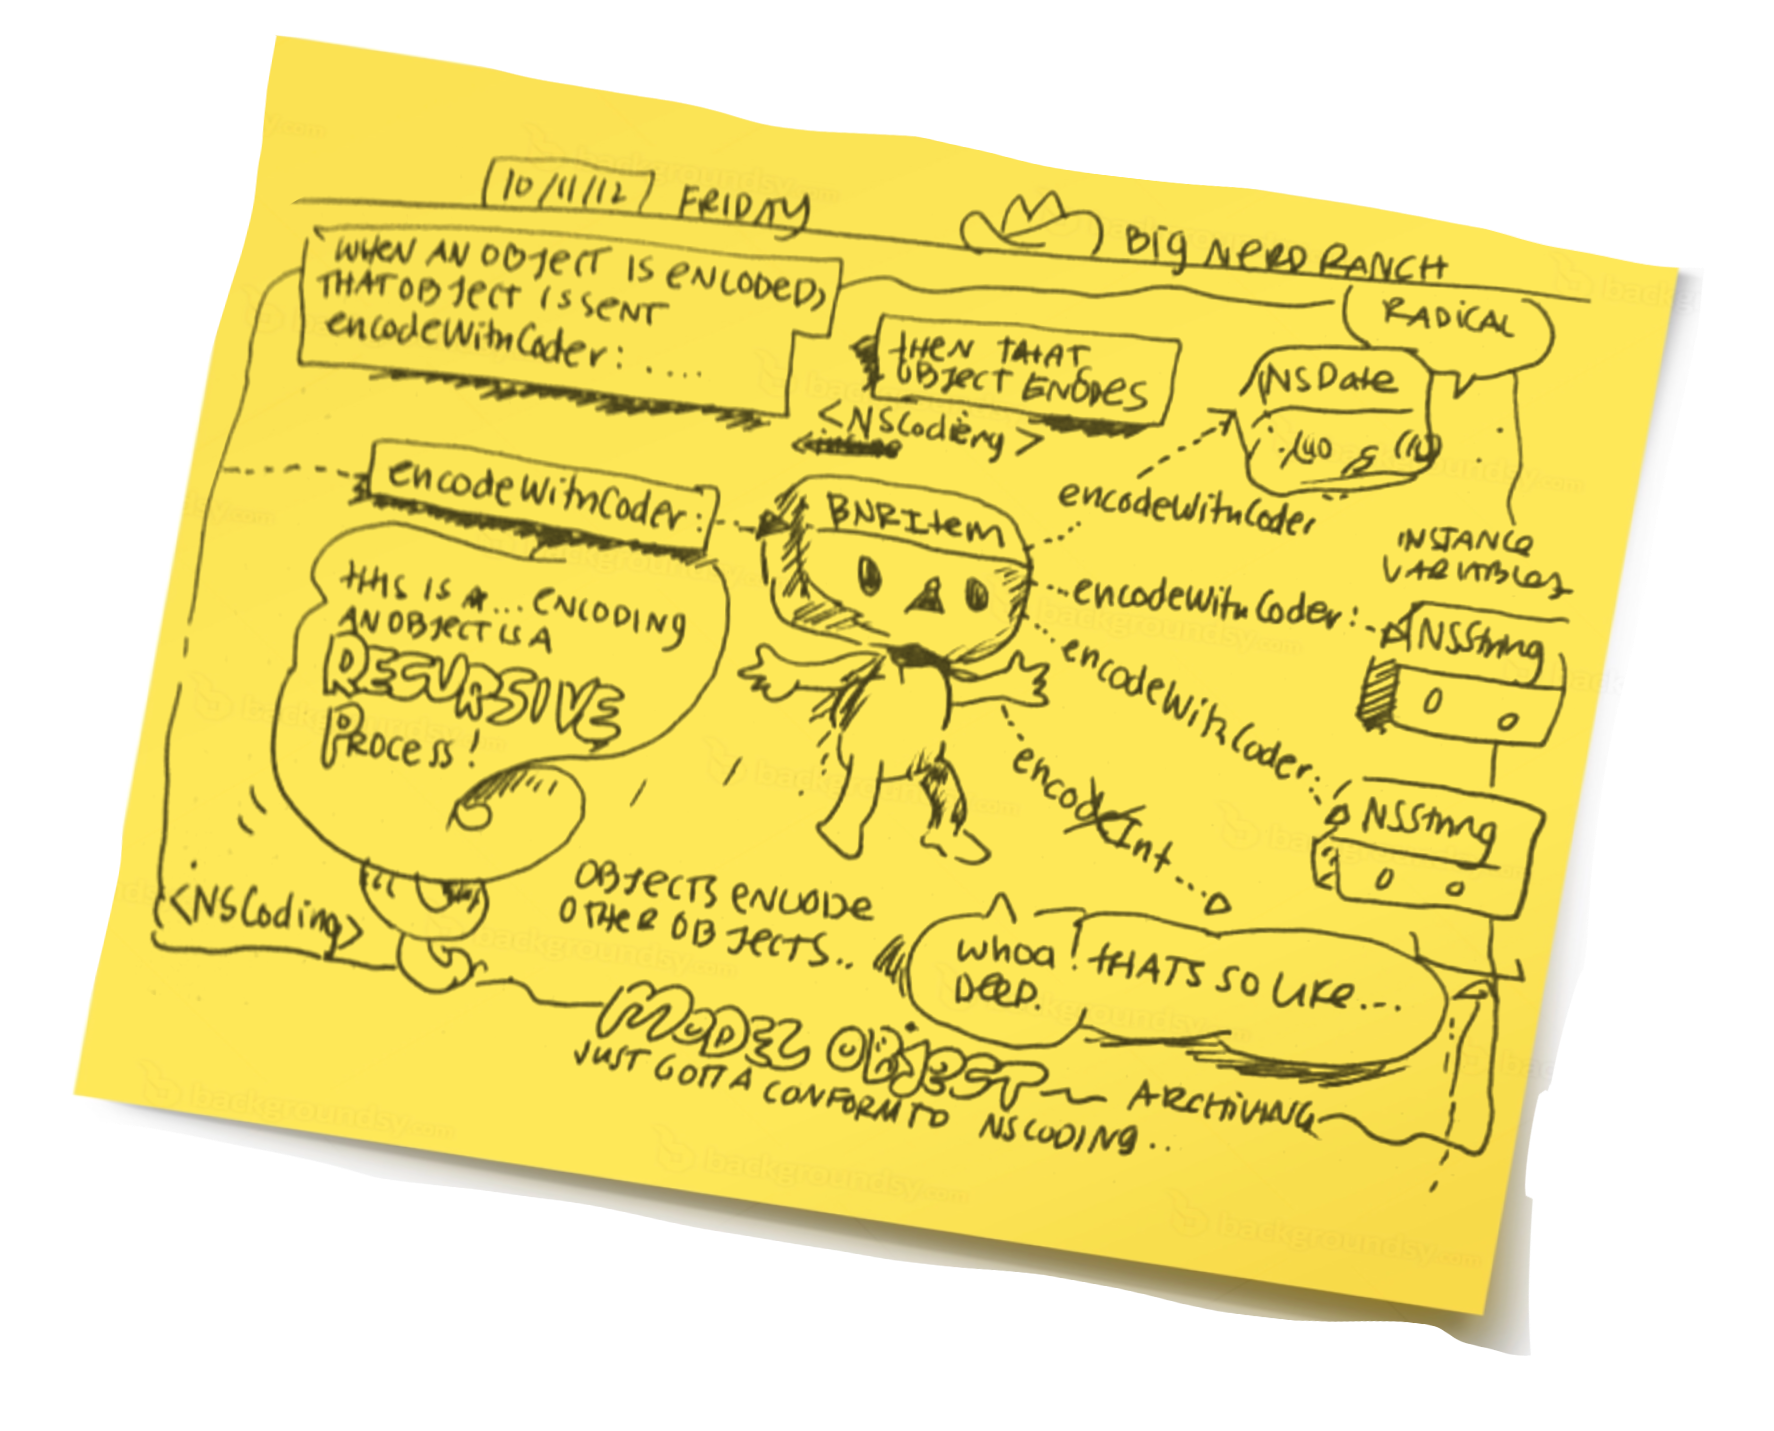 10/11/12 FRIDAY
BIG NERD RANCH
WHEN AN OBJECT IS ENCODED,
THAT OBJECT IS SENT
encodeWithCoder: ....
THEN THAT
OBJECT ENODES
<NSCoding>
RADICAL
NSDate
encodeWithCoder:
BNRItem
encodeWithCoder
INSTANCE
VARIABLES
encodeWithCoder:
NSString
encodeWithCoder:
NSString
encodeInt
THIS IS A... ENCODING
AN OBJECT IS A
RECURSIVE
PROCESS!
<NSCoding>
OBJECTS ENCODE
OTHER OBJECTS..
whoa! THATS SO LIKE...
DEEP.
MODEL OBJECT ARCHIVING
JUST GOTTA CONFORM TO NSCODING..
backgroundsy.com
backgroundsy.com
backgroundsy.com
backgroundsy.com
backgroundsy.com